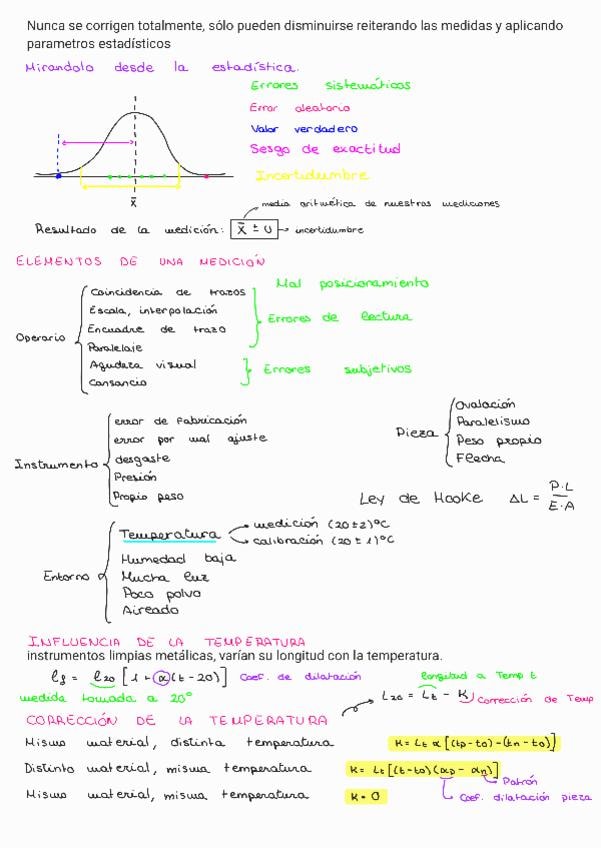 Nunca se corrigen totalmente, sólo pueden disminuirse reiterando las medidas y aplicando
parametros estadísticos
Mirandolo desde la estadística.
Errores sistemáticos
Error aleatorio
Valor verdadero
Sesgo de exactitud
Incertidumbre
x̄
media aritmética de nuestras mediciones
Resultado de la medición: x̄ ± U → incertidumbre
ELEMENTOS DE UNA MEDICIÓN
Operario
Coincidencia de trazos
Escala, interpolación
Encuadre de trazo
Paralelaje
Agudeza visual
Cansancio
Mal posicionamiento
Errores de lectura
Errores subjetivos
Instrumento
error de fabricación
error por mal ajuste
desgaste
Presión
Propio peso
Pieza
Ovalación
Paralelismo
Peso propio
Flecha
Ley de Hooke ΔL = P·L / E·A
Entorno
Temperatura
medición (20±2)ºC
calibración (20±1)ºC
Humedad baja
Mucha luz
Poco polvo
Aireado
INFLUENCIA DE LA TEMPERATURA
instrumentos limpias metálicas, varían su longitud con la temperatura.
l₀ = l₂₀ [1 + α(t - 20)] Coef. de dilatación
medida tomada a 20º
longitud a Temp t
L₂₀ = Lt - K
Corrección de Temp
CORRECCIÓN DE LA TEMPERATURA
Mismo material, distinta temperatura K = Lt α [(tp - to) - (tn - to)]
Distinto material, misma temperatura K = Lt [(t - to)(αp - αn)]
Patrón
Coef. dilatación pieza
Mismo material, misma temperatura K = 0